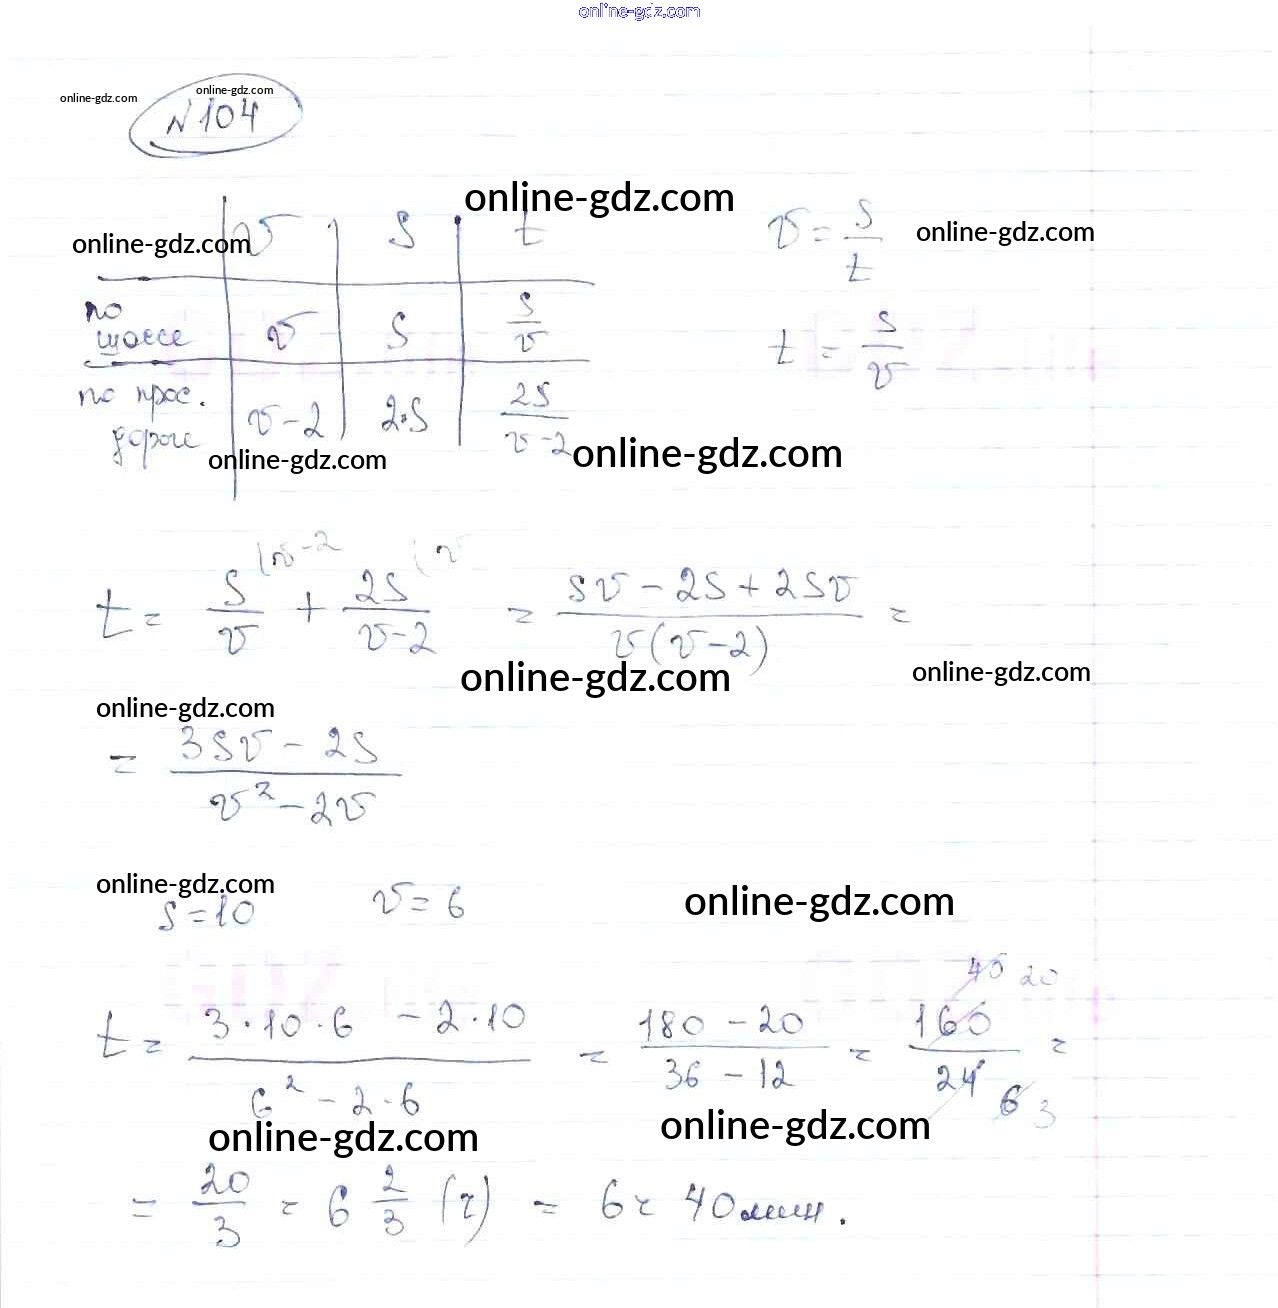 online-gdz.com
online-gdz.com
online-gdz.com
N 104
online-gdz.com
online-gdz.com
online-gdz.com
v | S | t
v = S/t
по шоссе | v | S | S/v
t = S/v
по прос. дороге | v - 2 | 2·S | 2S/(v - 2)
online-gdz.com
online-gdz.com
t = S/v (v-2 + 2S/(v-2) (v = (Sv - 2S + 2Sv)/(v(v-2)) =
online-gdz.com
online-gdz.com
online-gdz.com
= (3Sv - 2S)/(v² - 2v)
online-gdz.com
online-gdz.com
S = 10 v = 6
t = (3·10·6 - 2·10)/(6² - 2·6) = (180 - 20)/(36 - 12) = 160/24 40 20 6 3 =
online-gdz.com
online-gdz.com
= 20/3 = 6 2/3 (ч) = 6ч 40мин.